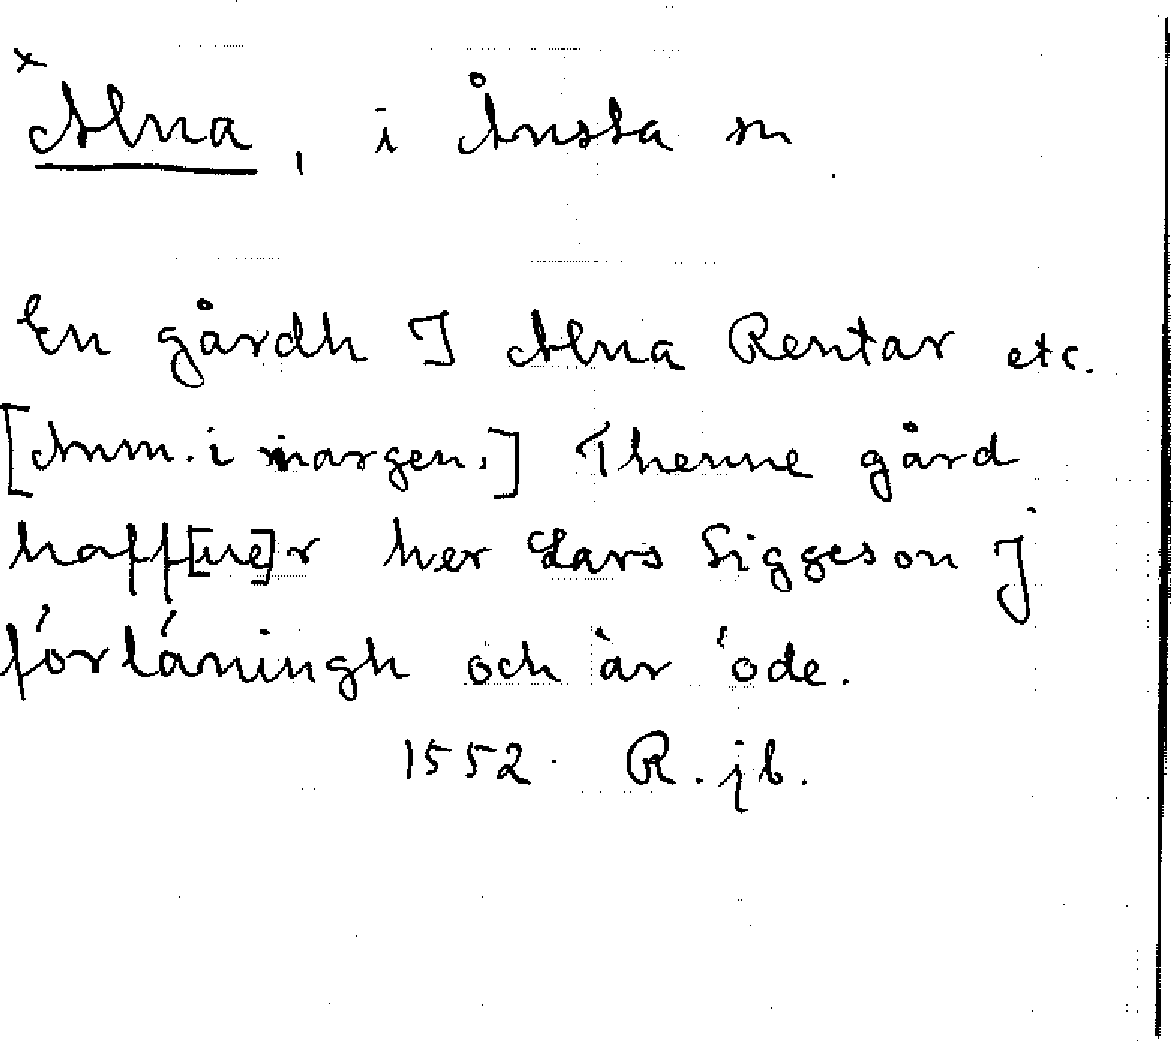 x
Alna, i Ånsta sn
En gårdh I Alna Rentar etc.
[Anm. i margen.] Thenne gård
haff[ue]r her Lars Siggeson J
förlåningh och är öde.
1552. R. jb.